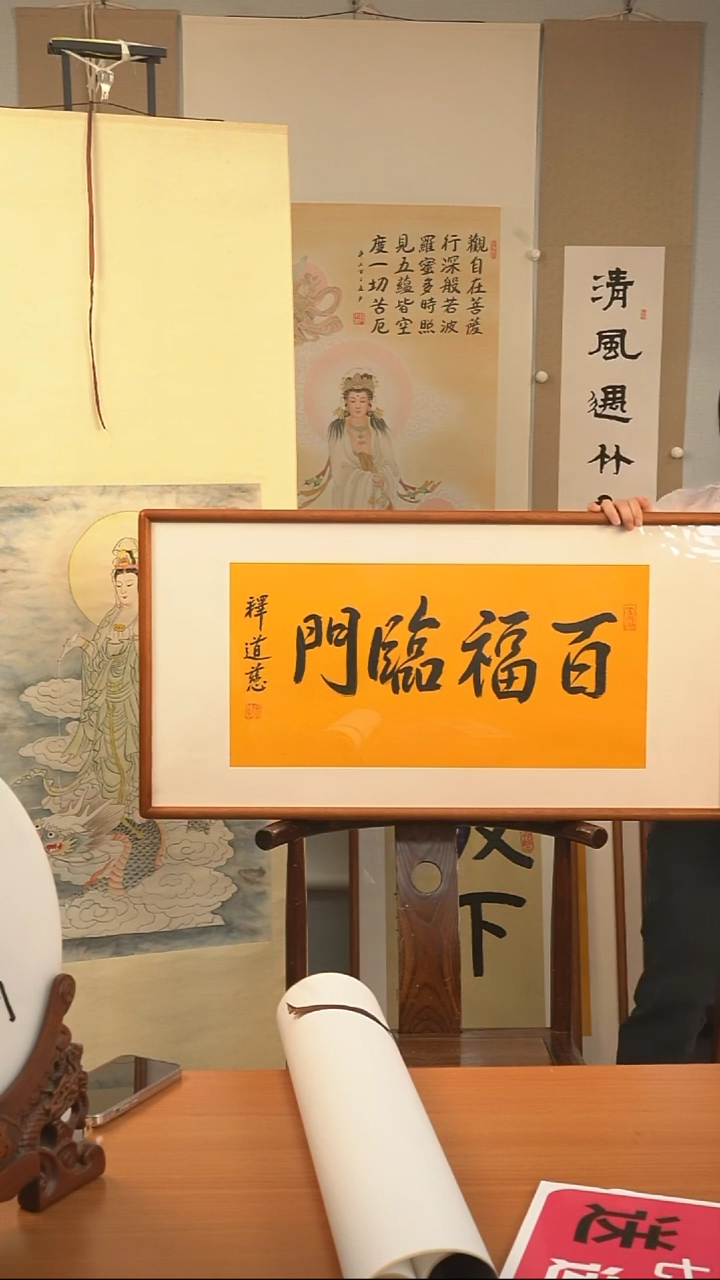 觀自在菩薩
行深般若波
羅蜜多時照
見五蘊皆空
度一切苦厄
清風遇竹
百福臨門
釋道慈
下
送